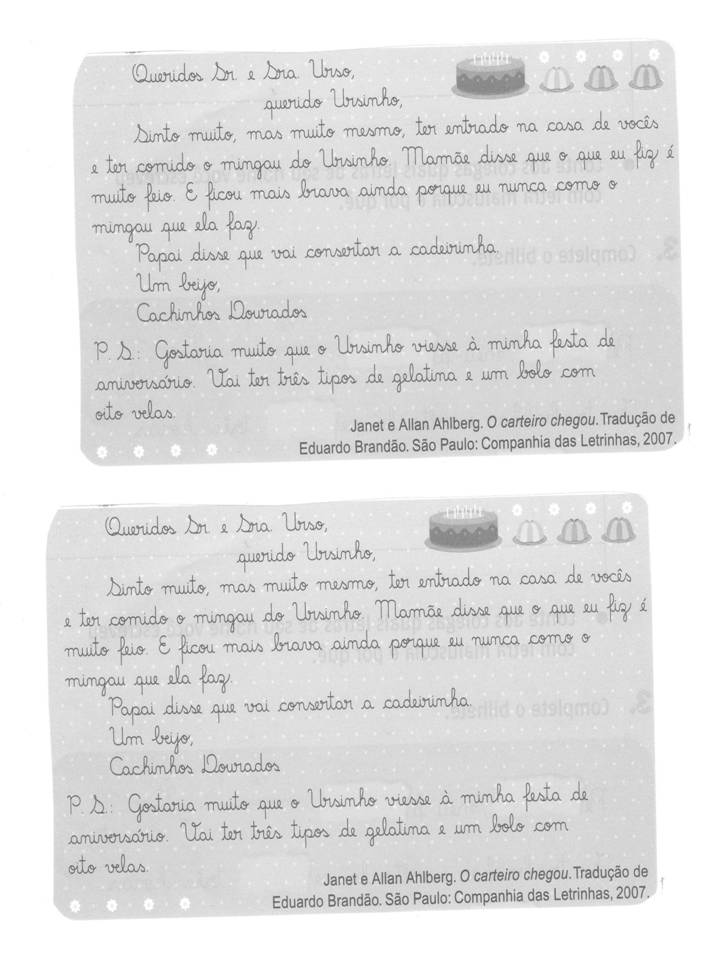 Queridos Sr. e Sra. Urso,
querido Ursinho,
Sinto muito, mas muito mesmo, ter entrado na casa de vocês
e ter comido o mingau do Ursinho. Mamãe disse que o que eu fiz é
muito feio. E ficou mais brava ainda porque eu nunca como o
mingau que ela faz.
Papai disse que vai consertar a cadeirinha.
Um beijo,
Cachinhos Dourados
P. S.: Gostaria muito que o Ursinho viesse à minha festa de
aniversário. Vai ter três tipos de gelatina e um bolo com
oito velas.
Janet e Allan Ahlberg. O carteiro chegou. Tradução de
Eduardo Brandão. São Paulo: Companhia das Letrinhas, 2007.
Queridos Sr. e Sra. Urso,
querido Ursinho,
Sinto muito, mas muito mesmo, ter entrado na casa de vocês
e ter comido o mingau do Ursinho. Mamãe disse que o que eu fiz é
muito feio. E ficou mais brava ainda porque eu nunca como o
mingau que ela faz.
Papai disse que vai consertar a cadeirinha.
Um beijo,
Cachinhos Dourados
P. S.: Gostaria muito que o Ursinho viesse à minha festa de
aniversário. Vai ter três tipos de gelatina e um bolo com
oito velas.
Janet e Allan Ahlberg. O carteiro chegou. Tradução de
Eduardo Brandão. São Paulo: Companhia das Letrinhas, 2007.